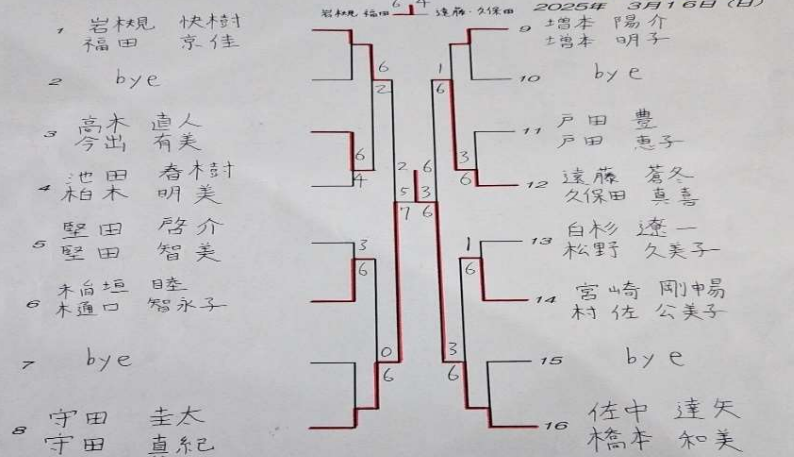 6 4
岩槻 福田 遠藤・久保田
2025年 3月16日(日)
1 岩槻 快樹
福田 京佳
2 bye
3 高木 直人
今出 有美
4 池田 春樹
柏木 明美
5 堅田 啓介
堅田 智美
6 稲垣 睦
樋口 智永子
7 bye
8 守田 圭太
守田 真紀
6
2
6
4
3
6
0
6
2 6
5 3
7 6
1
6
3
6
1
6
3
6
9 増本 陽介
増本 明子
10 bye
11 戸田 豊
戸田 恵子
12 遠藤 蒼冬
久保田 真喜
13 白杉 遼一
松野 久美子
14 宮崎 剛暢
村佐 公美子
15 bye
16 佐中 達矢
橋本 和美